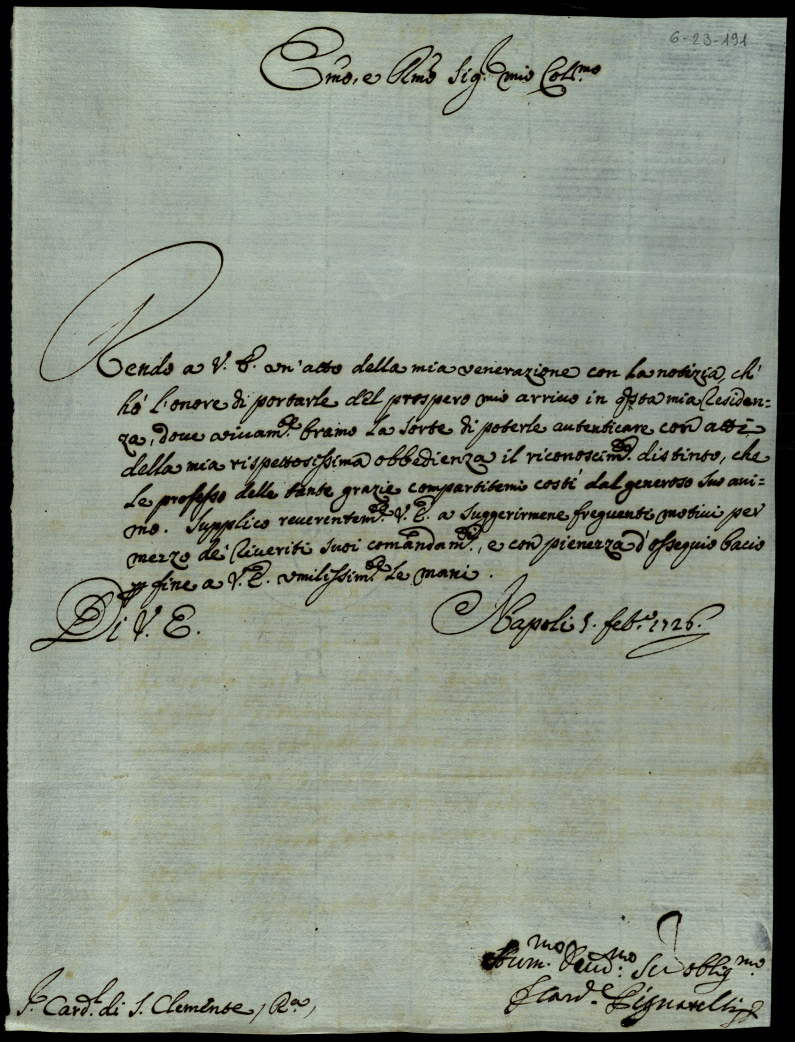 6-23-191
Emo, e Rmo Sig.r mio Coll.mo
Rendo a V. E. un' atto della mia venerazione con la notizia, ch'
hó l'onore di portarle del prospero mio arrivo in qsta mia Residen=
za, dove vivam.te bramo la sorte di poterle autenticare con atti
della mia rispettosissima obbedienza il riconoscim.to distinto, che
le professo delle tante grazie compartitemi costí dal generoso suo ani=
mo. Supplico reverentem.te V. E. a suggerirmene frequenti motivi per
mezzo de' riveriti suoi comandam.ti, e con pienezza d'ossequio bacio
p fine a V. E. umilissim.te le mani.
Di V. E. Napoli 5. feb.o 1726.
Hum.mo Deud.mo Se oblig.mo
F Card.e Pignatelli
S.r Card.l di S. Clemente, Ra,